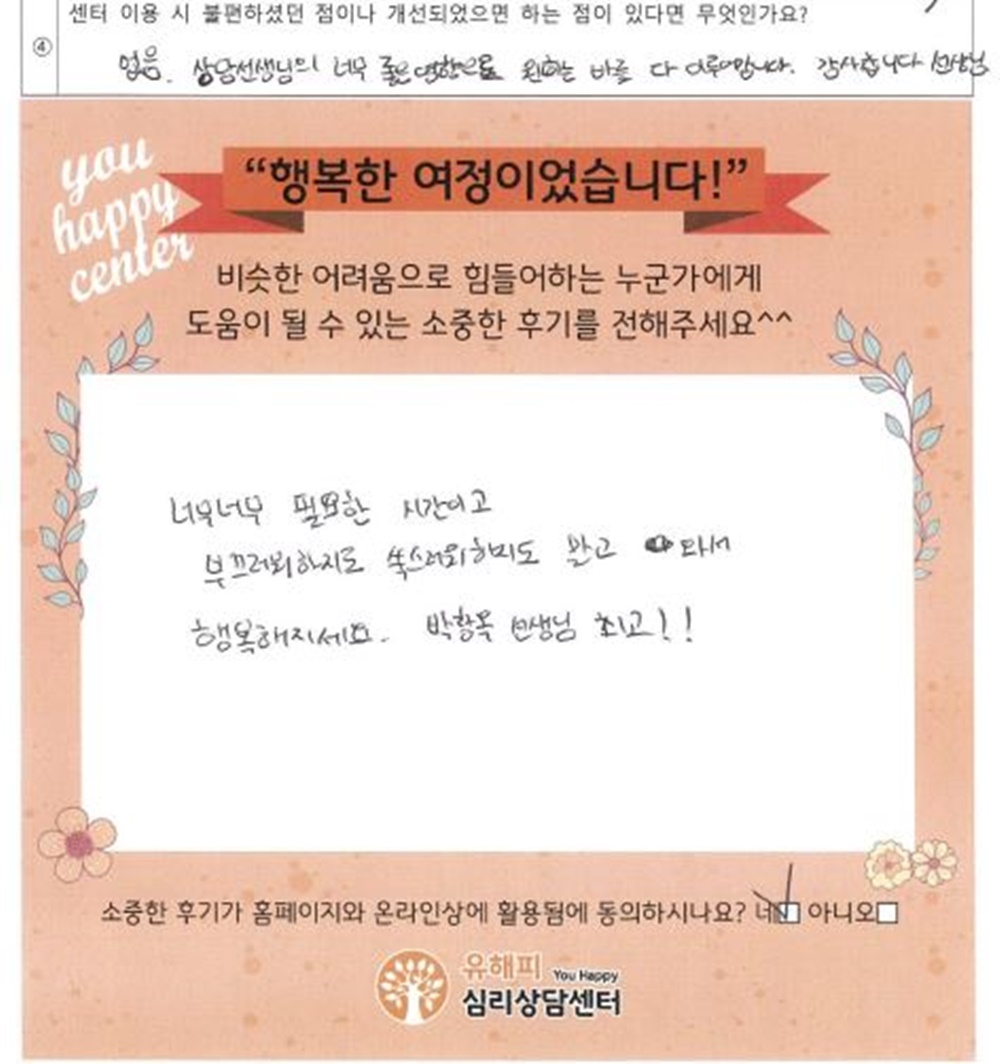 센터 이용 시 불편하셨던 점이나 개선되었으면 하는 점이 있다면 무엇인가요?
④
없음. 상담선생님의 너무 좋은 영향으로 원하는 바를 다 이루어갑니다. 감사합니다 선생님
you
happy
center
“행복한 여정이었습니다!”
비슷한 어려움으로 힘들어하는 누군가에게
도움이 될 수 있는 소중한 후기를 전해주세요^^
너무너무 필요한 시간이고
부끄러워하지도 쑥스러워하지도 말고 와서
행복해지세요. 박황목 선생님 최고!!
소중한 후기가 홈페이지와 온라인상에 활용됨에 동의하시나요? 네□ 아니오□
유해피 You Happy
심리상담센터